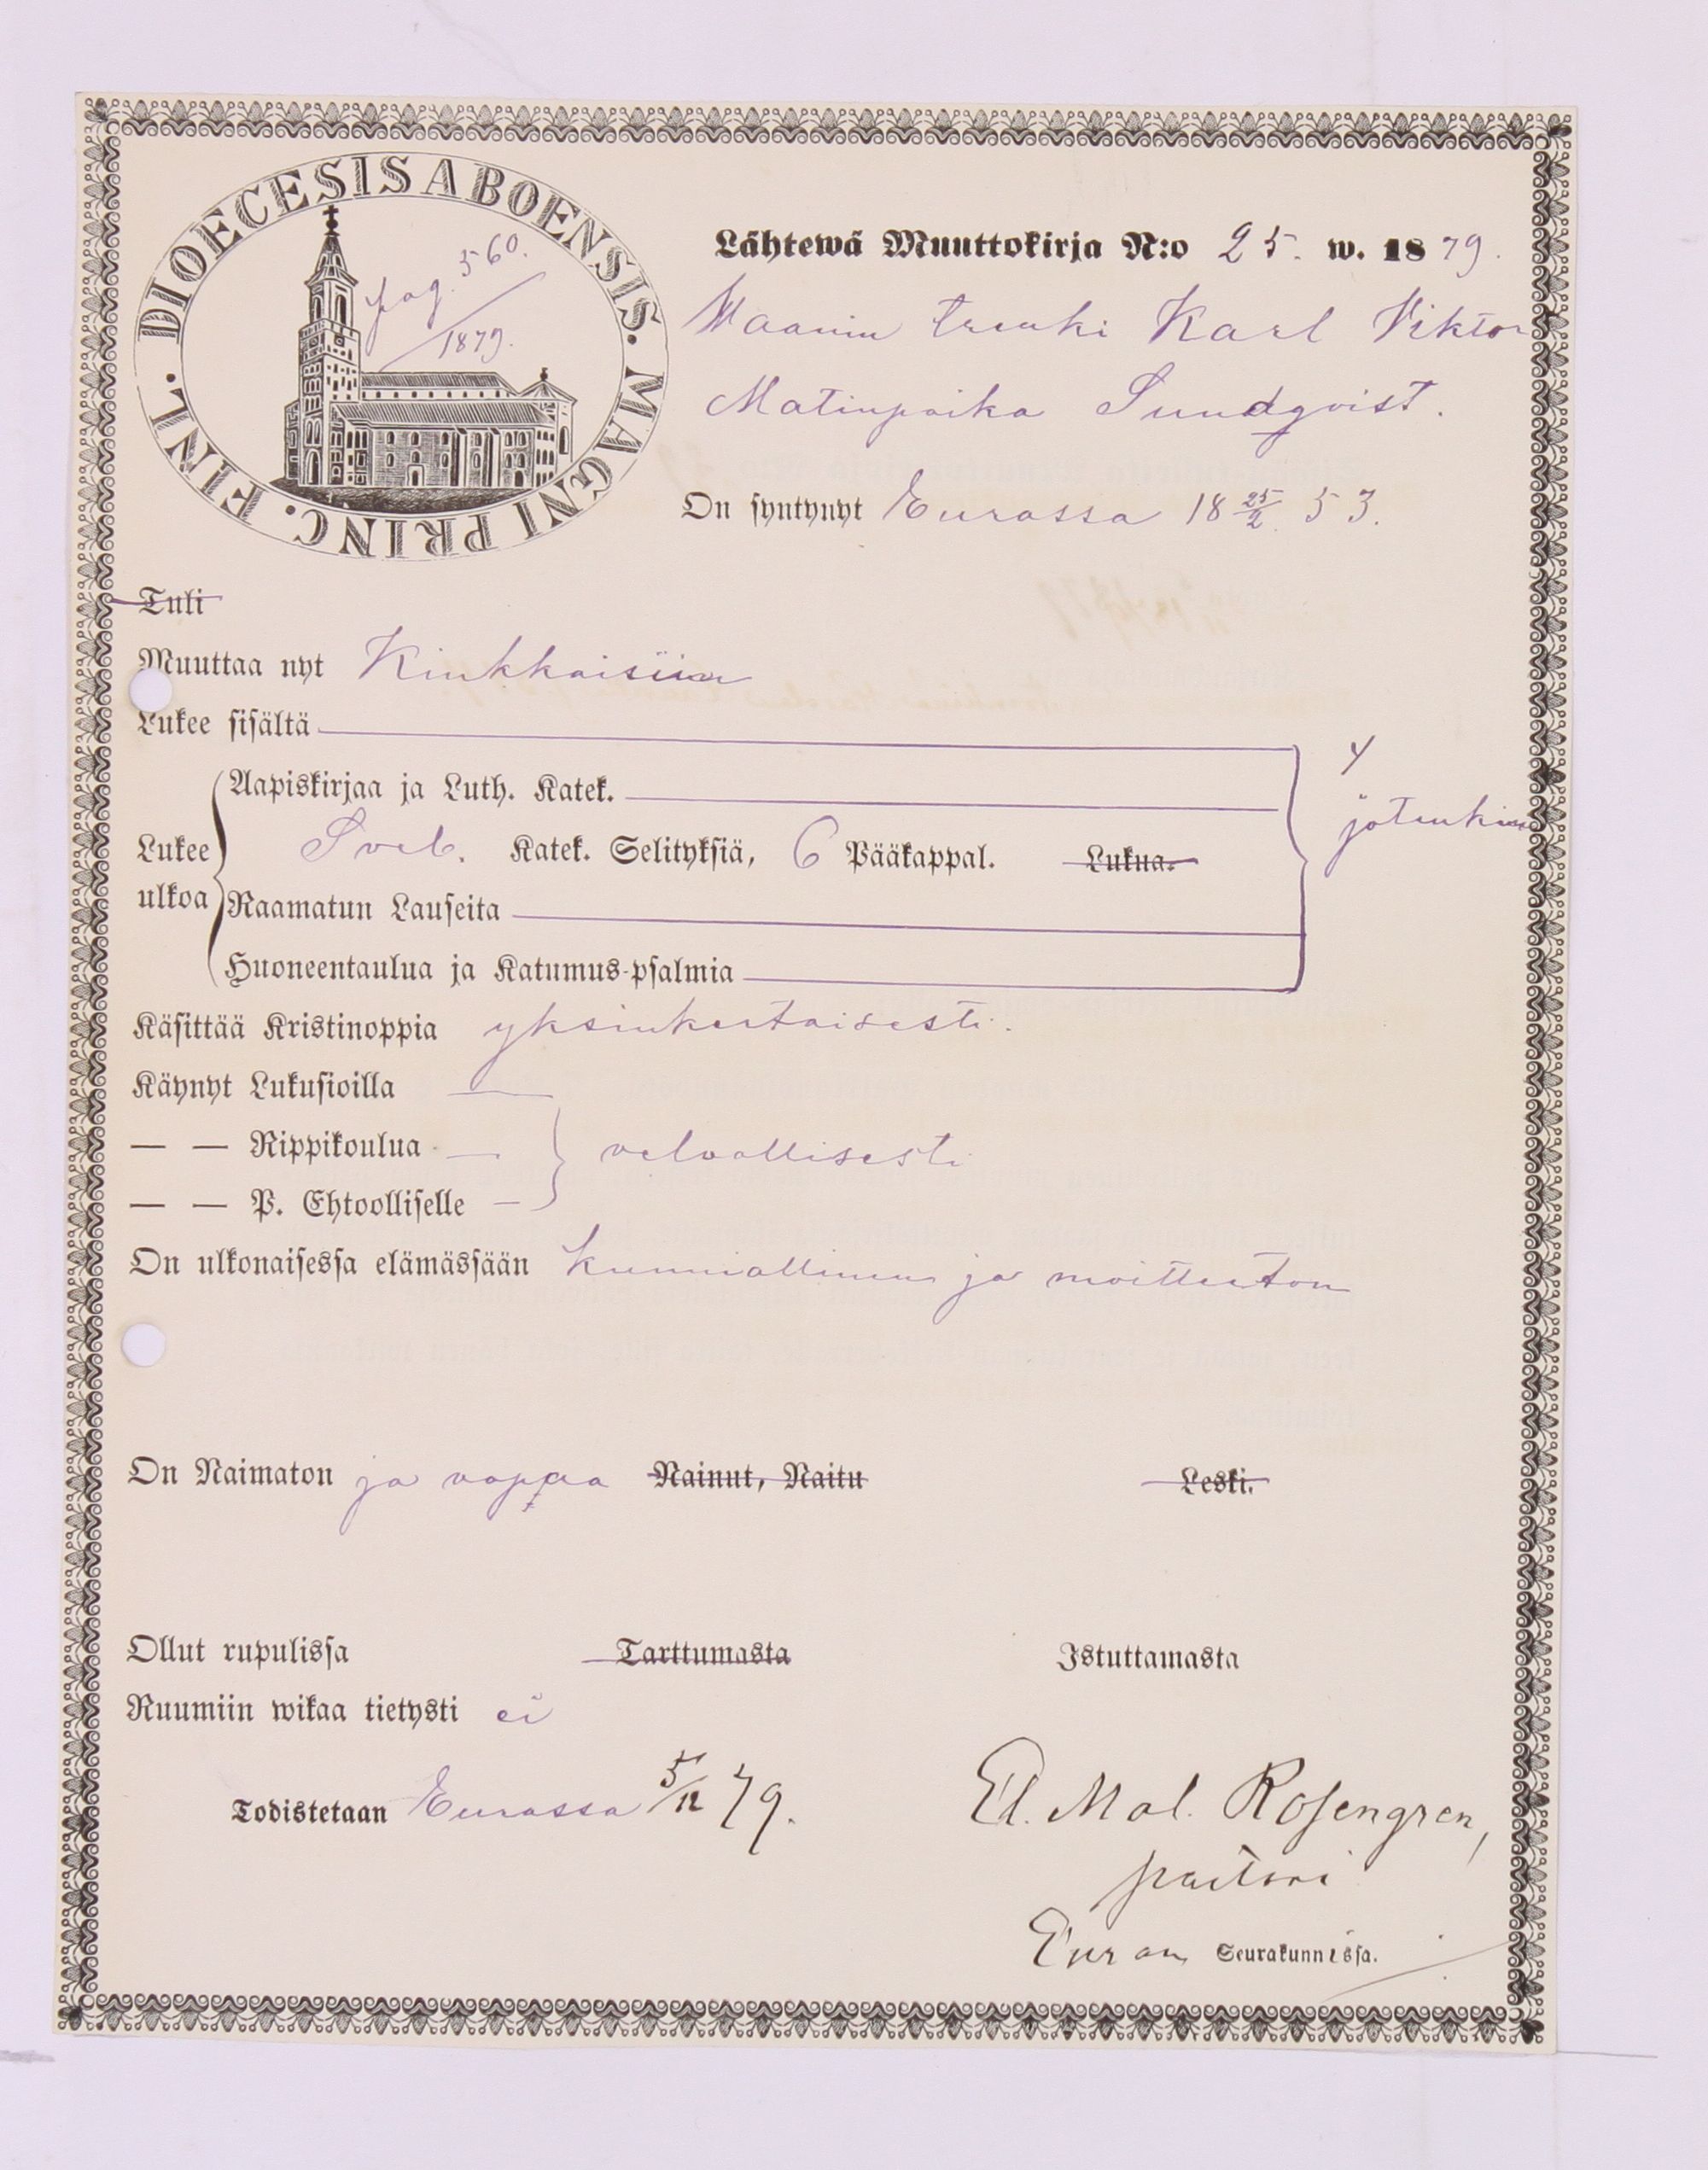 DIOECESIS ABOENSIS. MAGNI PRINC. FINL.
pag. 560.
1879.
Lähtewä Muuttokirja N:o 25. w. 1879.
Maanin trenki Karl Viktor
Matinpoika Sundqvist.
On syntynyt Eurassa 18 25/2 53.
Tuli
Muuttaa nyt Kiukkaisiin
Lukee sisältä
Aapiskirjaa ja Luth. Katek.
jotenkin
Lukee ulkoa
Sveb. Katek. Selityksiä, 6 Pääkappal. Lukua.
Raamatun Lauseita
Huoneentaulua ja Katumus-psalmia
Käsittää Kristinoppia yksinkertaisesti.
Käynyt Lukusioilla
— — Rippikoulua
velvollisesti
— — P. Ehtoolliselle
On ulkonaisessa elämässään kunniallinen ja moitteeton
On Naimaton ja vapaa Nainut, Naitu Leski.
Ollut rupulissa Tarttumasta Istuttamasta
Ruumiin wikaa tietysti ei
Todistetaan Eurassa 5/12 79.
Rosengren,
pastori
Euran Seurakunnissa.